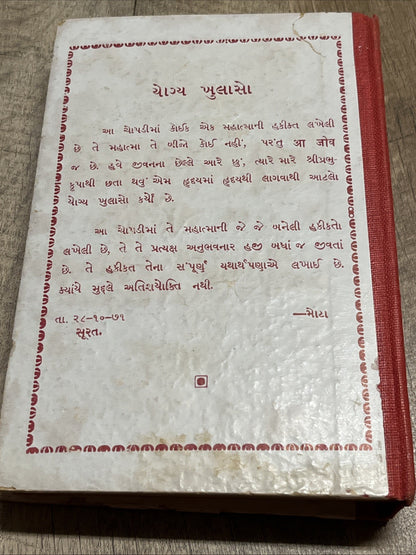 યોગ્ય ખુલાસો
આ ચોપડીમાં કોઈક એક મહાત્માની હકીકત લખેલી
છે. તે મહાત્મા તે બીજો કોઈ નહીં, પરંતુ આ જીવ
જ છે. હવે જીવનના છેલ્લે આરે છું, ત્યારે મારે શ્રીપ્રભુ-
કૃપાથી છતા થવું એમ હૃદયમાં હૃદયથી લાગવાથી આટલો
યોગ્ય ખુલાસો કર્યો છે.
આ ચોપડીમાં તે મહાત્માની જે જે બનેલી હકીકતો
લખેલી છે, તે તે પ્રત્યક્ષ અનુભવનાર હજી બધાં જ જીવતાં
છે. તે હકીકત તેના સંપૂર્ણ યથાર્થપણાએ લખાઈ છે.
ક્યાંયે મુદ્દલે અતિશયોક્તિ નથી.
તા. ૨૮-૧૦-૭૧ —મોટા
સૂરત.